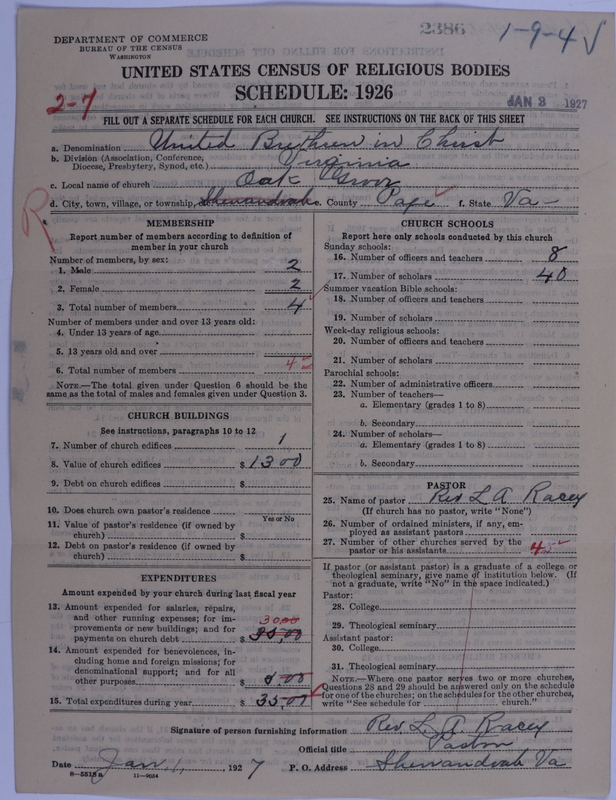 2386
1-9-4 √
DEPARTMENT OF COMMERCE
BUREAU OF THE CENSUS
WASHINGTON
UNITED STATES CENSUS OF RELIGIOUS BODIES
SCHEDULE: 1926
2-7
JAN 3 1927
FILL OUT A SEPARATE SCHEDULE FOR EACH CHURCH. SEE INSTRUCTIONS ON THE BACK OF THIS SHEET
a. Denomination United Brethren in Christ
b. Division (Association, Conference, Diocese, Presbytery, Synod, etc.) Virginia
c. Local name of church Oak Grove
d. City, town, village, or township, Shenandoah e. County Page f. State Va-
R
MEMBERSHIP
Report number of members according to definition of member in your church
Number of members, by sex:
1. Male 2
2. Female 2
3. Total number of members 4
Number of members under and over 13 years old:
4. Under 13 years of age
5. 13 years old and over
6. Total number of members 4
NOTE.—The total given under Question 6 should be the same as the total of males and females given under Question 3.
CHURCH BUILDINGS
See instructions, paragraphs 10 to 12
7. Number of church edifices 1
8. Value of church edifices $ 1300
9. Debt on church edifices $
10. Does church own pastor's residence
Yes or No
11. Value of pastor's residence (if owned by church) $
12. Debt on pastor's residence (if owned by church) $
EXPENDITURES
Amount expended by your church during last fiscal year
13. Amount expended for salaries, repairs, and other running expenses; for improvements or new buildings; and for payments on church debt $ 30.00
14. Amount expended for benevolences, including home and foreign missions; for denominational support; and for all other purposes $
15. Total expenditures during year $ 35.00
CHURCH SCHOOLS
Report here only schools conducted by this church
Sunday schools:
16. Number of officers and teachers 8
17. Number of scholars 40
Summer vacation Bible schools:
18. Number of officers and teachers
19. Number of scholars
Week-day religious schools:
20. Number of officers and teachers
21. Number of scholars
Parochial schools:
22. Number of administrative officers
23. Number of teachers—
a. Elementary (grades 1 to 8)
b. Secondary
24. Number of scholars—
a. Elementary (grades 1 to 8)
b. Secondary
PASTOR
25. Name of pastor Rev L A Racey
(If church has no pastor, write "None")
26. Number of ordained ministers, if any, employed as assistant pastors
27. Number of other churches served by the pastor or his assistants 4
If pastor (or assistant pastor) is a graduate of a college or theological seminary, give name of institution below. (If not a graduate, write "No" in the space indicated.)
Pastor:
28. College
29. Theological seminary
Assistant pastor:
30. College
31. Theological seminary
NOTE.—Where one pastor serves two or more churches, Questions 28 and 29 should be answered only on the schedule for one of the churches; on the schedules for the other churches, write "See schedule for church."
Signature of person furnishing information Rev. L. A Racey
Official title Pastor
Date Jan, 1, 1927 P. O. Address Shenandoah Va
8—5518a 11—9624